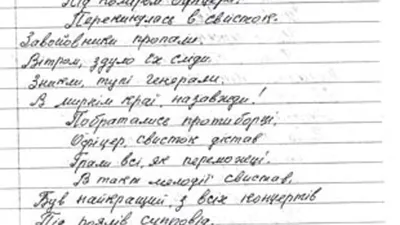 Під номіром офіцера.
Перекинулась в свисток.
Завойовники пропали,
Вітром, здуло їх сліди.
Зникли, тупі генерали.
В миркім краї, назавжди!
Побратались противборці,
Офіцер, свисток дістав
Грали всі, як переможці.
В такт мелодії свистав,
Був найкращий, з всіх концертів
Під роялів супровід.